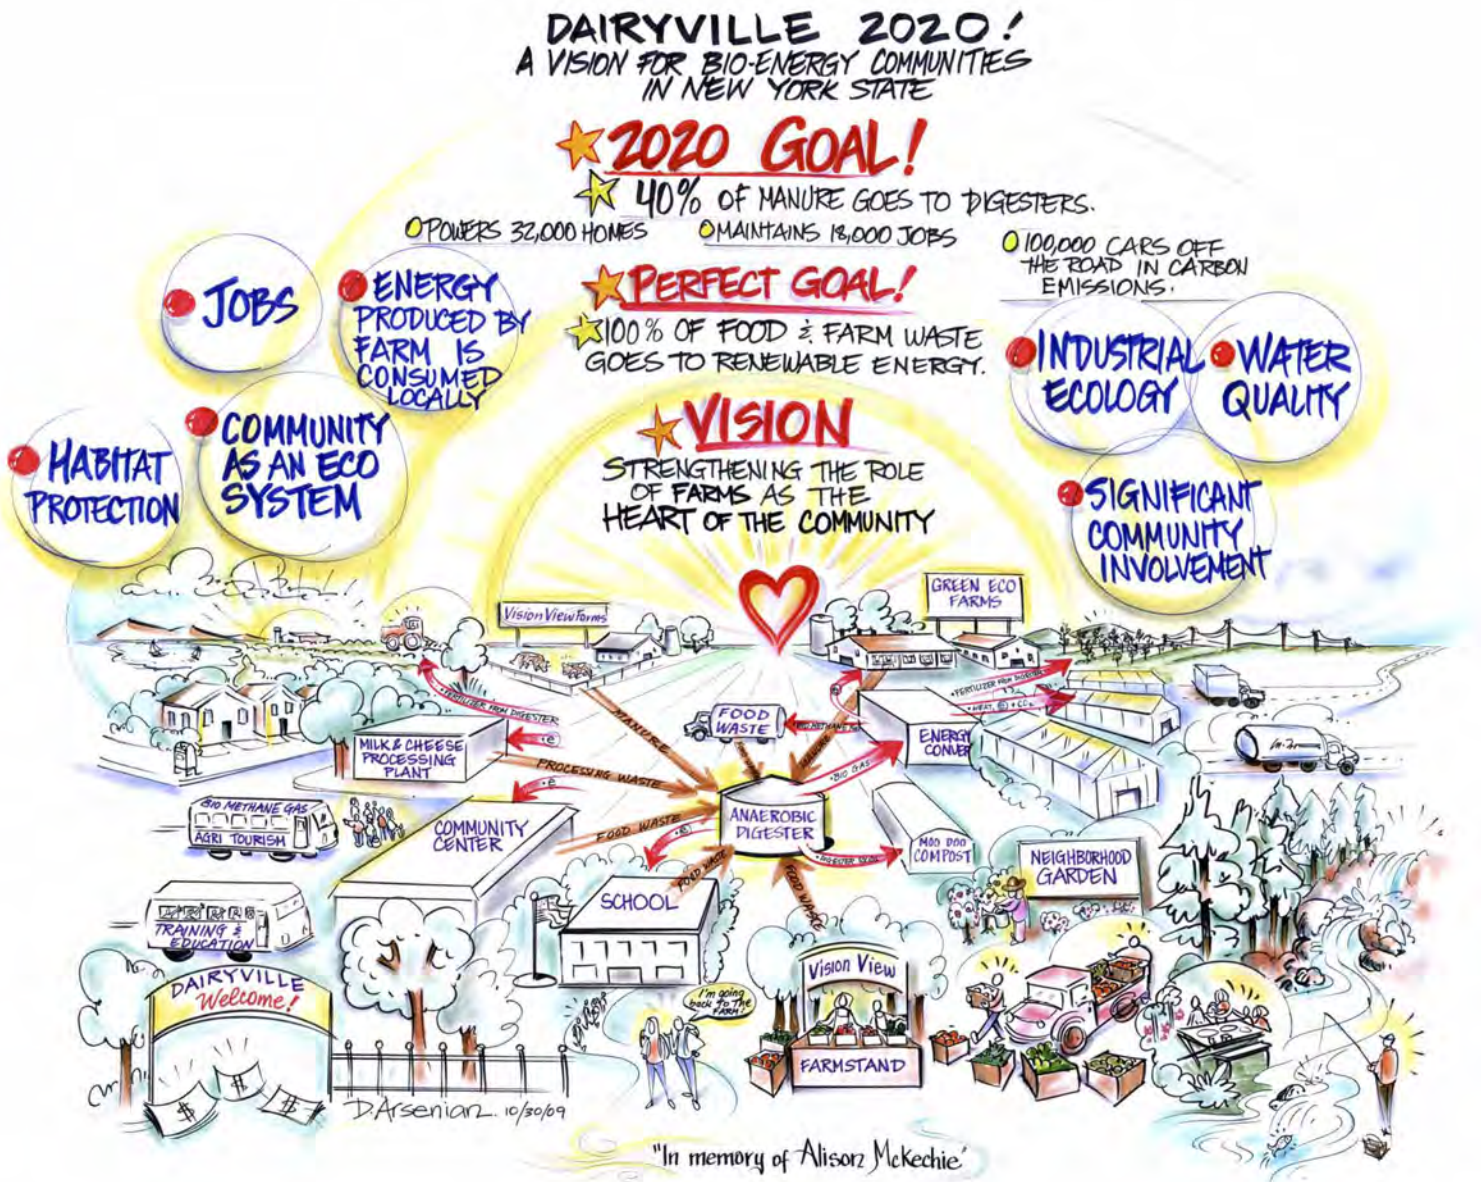 DAIRYVILLE 2020!
A VISION FOR BIO-ENERGY COMMUNITIES
IN NEW YORK STATE
2020 GOAL!
40% OF MANURE GOES TO DIGESTERS.
POWERS 32,000 HOMES
MAINTAINS 18,000 JOBS
100,000 CARS OFF
THE ROAD IN CARBON
EMISSIONS.
PERFECT GOAL!
100% OF FOOD & FARM WASTE
GOES TO RENEWABLE ENERGY.
VISION
STRENGTHENING THE ROLE
OF FARMS AS THE
HEART OF THE COMMUNITY
JOBS
ENERGY
PRODUCED BY
FARM IS
CONSUMED
LOCALLY
HABITAT
PROTECTION
COMMUNITY
AS AN ECO
SYSTEM
INDUSTRIAL
ECOLOGY
WATER
QUALITY
SIGNIFICANT
COMMUNITY
INVOLVEMENT
Vision View Farms
GREEN ECO
FARMS
FERTILIZER FROM DIGESTER
MANURE
FOOD
WASTE
MANURE
FERTILIZER FROM DIGESTER
HEAT, e + CO2
ENERGY
MILK & CHEESE
PROCESSING
PLANT
e
PROCESSING WASTE
e
BIO GAS
ANAEROBIC
DIGESTER
BIO METHANE GAS
AGRI TOURISM
COMMUNITY
CENTER
FOOD WASTE
e
FOOD WASTE
FOOD WASTE
MOO DOO
COMPOST
NEIGHBORHOOD
GARDEN
SCHOOL
TRAINING &
EDUCATION
DAIRYVILLE
Welcome!
$
$
$
I'm going
back to the
FARM!
Vision View
FARMSTAND
D. Arsenian 10/30/09
"In memory of Alison McKechie"